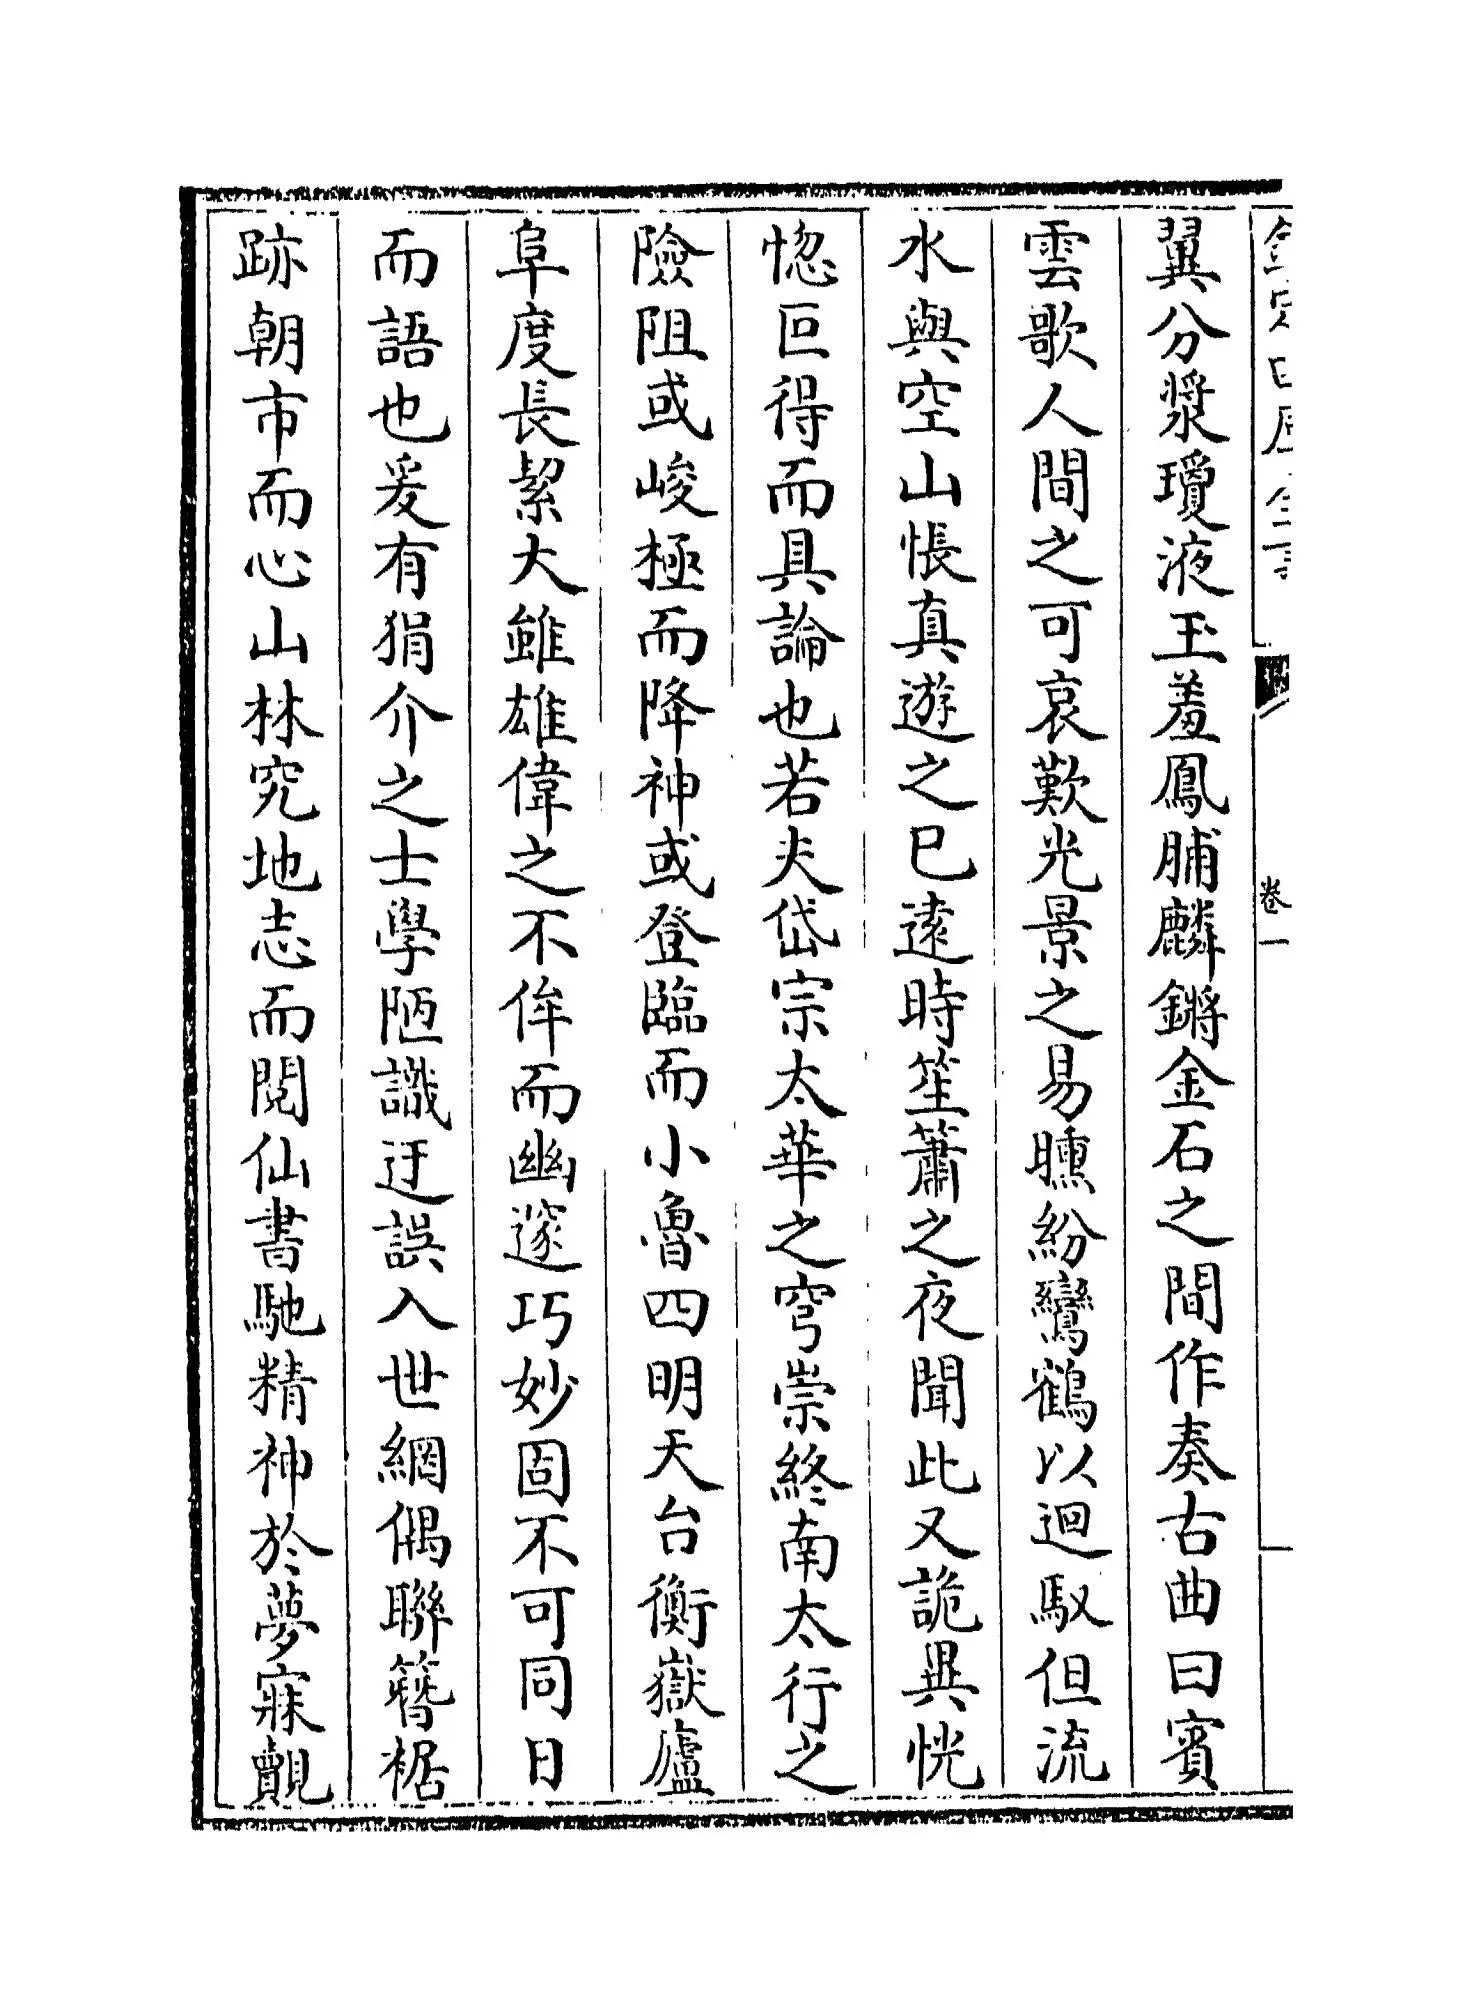 欽定四庫全書
卷一
翼分漿瓊液玉羞鳳脯麟鏘金石之間作奏古曲曰賓
雲歌人間之可哀歎光景之易曛紛鸞鶴以迴馭但流
水與空山悵真遊之已遠時笙簫之夜聞此又詭異恍
惚叵得而具論也若夫岱宗太華之穹崇終南太行之
險阻或峻極而降神或登臨而小魯四明天台衡嶽廬
阜度長絜大雖雄偉之不侔而幽邃巧妙固不可同日
而語也爰有狷介之士學陋識迂誤入世網偶聯簪裾
跡朝市而心山林究地志而閱仙書馳精神於夢寐觀